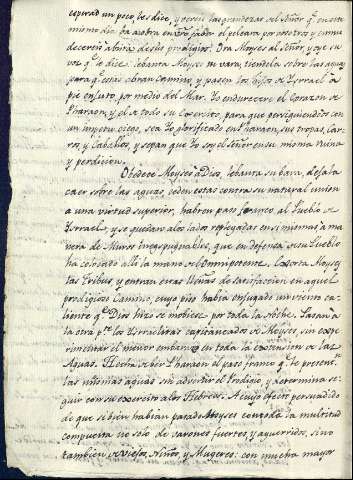 esperad un poco les dice, y vereis las grandezas del Señor q.e en este
mismo dia ha a obra en vro favor: el peleara por vosotros y enmu
decereis a vista de sus prodigios. Ora Moyses al Señor, y oye su
voz q.e le dice: lebanta Moyses tu vara, tiendela sobre las aguas
para q.e estas abran Camino, y pasen los hijos de Ysrrael a
pie enjuto, por medio del Mar. Yo endurecere el Corazon de
Pharaon, y el de todo su Exercito, para que persiguiendôs con
un impetu ciego, sea Yo glorificado en Pharaon, sus tropas, Car
ros, y Caballos, y sepan que Yo soy el Señor en su misma ruina
y perdicion.
Obedece Moyses à Dios, lebanta su bara, dejala
caer sobre las aguas, ceden estas contra su natural union
a una virtud superior, habren paso franco al Pueblo de
Ysrael, y se quedan a los lados replegadas en si mismas à ma
nera de Muros inexpugnables, que en defensa de su Pueblo
ha colocado alli la mano del Omnipotente. Exorta Moyses
las Tribus, y entran estas llenas de satisfaccion en aquel
prodigioso Camino, cuyo piso habia enjugado un viento ca
liente q.e Dios hizo se mobiese por toda la Noche. Pasan à
la otra p.te los Ysraelitas capitaneados de Moyses, sin expe
rimentar el menor embarazo en toda la extension de las
Aguas. Hecha de ver Pharaon el paso franco q.e te present.n
las mismas aguas sin advertir el Prodigio, y determina se
guir con su exercito a los Hebreos. A cuyo efecto persuadido
de que si bien habian pasado Moyses con toda la multitud
compuesta no solo de varones fuertes, y aguerridos, sino
tambien de viejos, Niños, y Mugeres: con mucha mayor